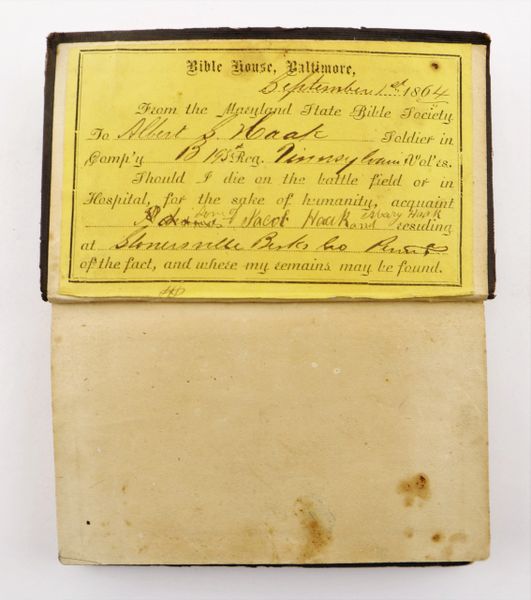 Bible House, Baltimore,
September 1st 1864
From the Maryland State Bible Society
To Albert S. Haak Soldier in
Comp'y B 195th Reg. Pennsylvania Vol's.
Should I die on the battle field or in
Hospital, for the sake of humanity, acquaint
Jacob Haak and residing
at Stonersville Berks Co Penna
of the fact, and where my remains may be found.